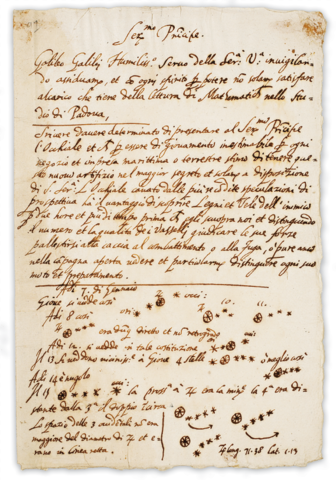 Ser.mo Principe.
Galileo Galilei Humiliss.o Servo della Ser.a V.a invigilan-
do assiduamte, et con ogni spirito p potere no solam satisfare
al carico che tiene della lettura di Mathematich nello Stu-
dio di Padova,
Scrivere d'avere determinato di presentare al Ser.mo Principe
l'Occhiale et p essere di giovamento inestimabile p ogni
negozio et impresa marittima o terrestre stimo di tenere que-
sto nuovo artifizio nel maggior segreto et solam a disposizione
di S. Ser.a L'Occhiale cavato dalle più recondite speculazioni di
prospettiva ha il vantaggio di scoprire Legni et Vele dell'inimico
p due hore et più di tempo prima ch egli scuopra noi et distinguendo
il numero et la qualità de i Vasselli giudicare le sue forze
pallestirsi alla caccia al combattimento o alla fuga, o pure anco
nella capagna aperta vedere et particularm distinguere ogni suo
moto et preparamento.
Adi 7. di Gennaio
Giove si vedde così
Adi 8 così
era dūq diretto et nō retrogrado
Adi 12. si vedde in tale costituzione
Il 13 si veddono vicinis.e a Giove 4 stelle
Adi 14 è nugolo
Il 15
la pross.a a
la 4.a era di-
stante dalla 3.a il doppio
Lo spazio delle 3 occidētali nō era
maggiore del diametro di
et e-
rano in linea retta.
long. 71.38 lat. 1.13